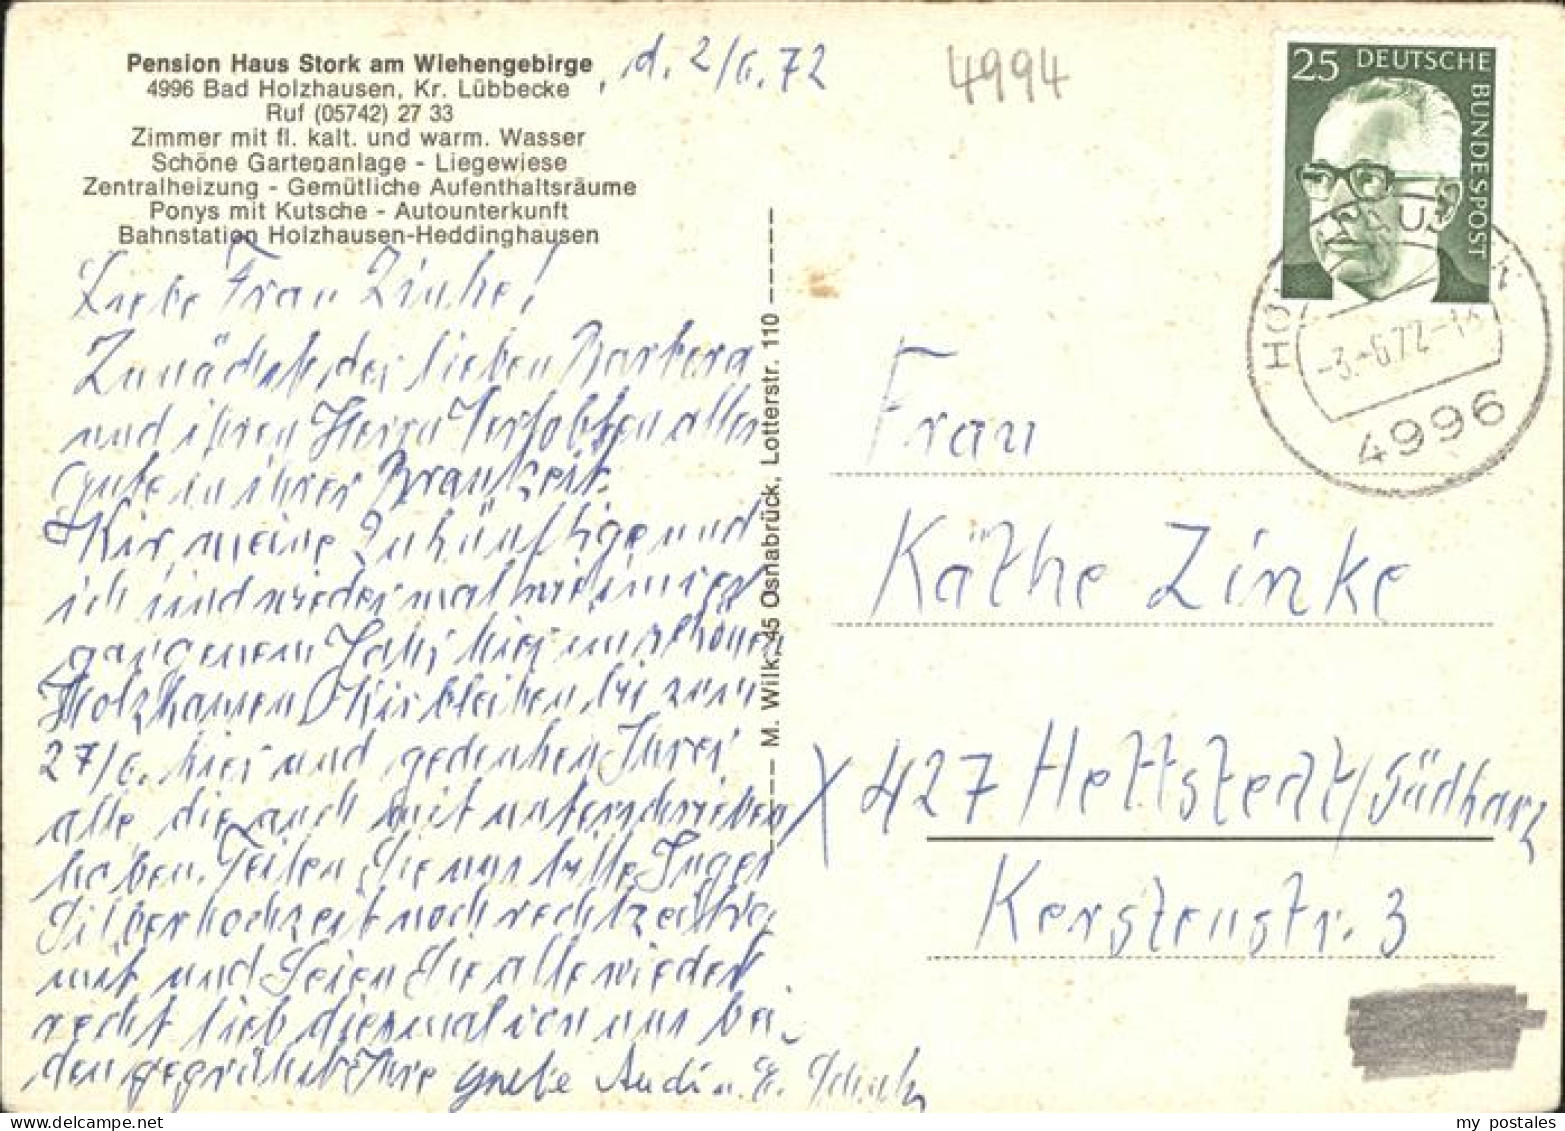 Pension Haus Stork am Wiehengebirge
4996 Bad Holzhausen, Kr. Lübbecke
Ruf (05742) 27 33
Zimmer mit fl. kalt. und warm. Wasser
Schöne Gartenanlage - Liegewiese
Zentralheizung - Gemütliche Aufenthaltsräume
Ponys mit Kutsche - Autounterkunft
Bahnstation Holzhausen-Heddinghausen
, d. 2/6. 72
Liebe Frau Zinke!
Zunächst der lieben Barbara
und ihren Herrn Verlobten alles
Gute in ihrer Brautzeit.
Wir, meine Zukünftige und
ich sind wieder mal wie im ver
gangenem Jahr hier im schönen
Holzhausen. Wir bleiben bis zum
27/6. hier und gedenken Ihrer
alle, die auch mit unterschrieben
haben. Teilen Sie uns bitte Inges
Silberhochzeit noch rechtzeitig
mit und Seien Sie alle wieder
recht lieb diesmal von uns bei-
den gegrüßt Ihre
M. Wilk, 45 Osnabrück, Lotterstr. 110
4994
25 DEUTSCHE BUNDESPOST
-3.-6.72-
4996
Frau
Käthe Zinke
X 427 Hettstedt/Südharz
Kerstenstr. 3
my postales